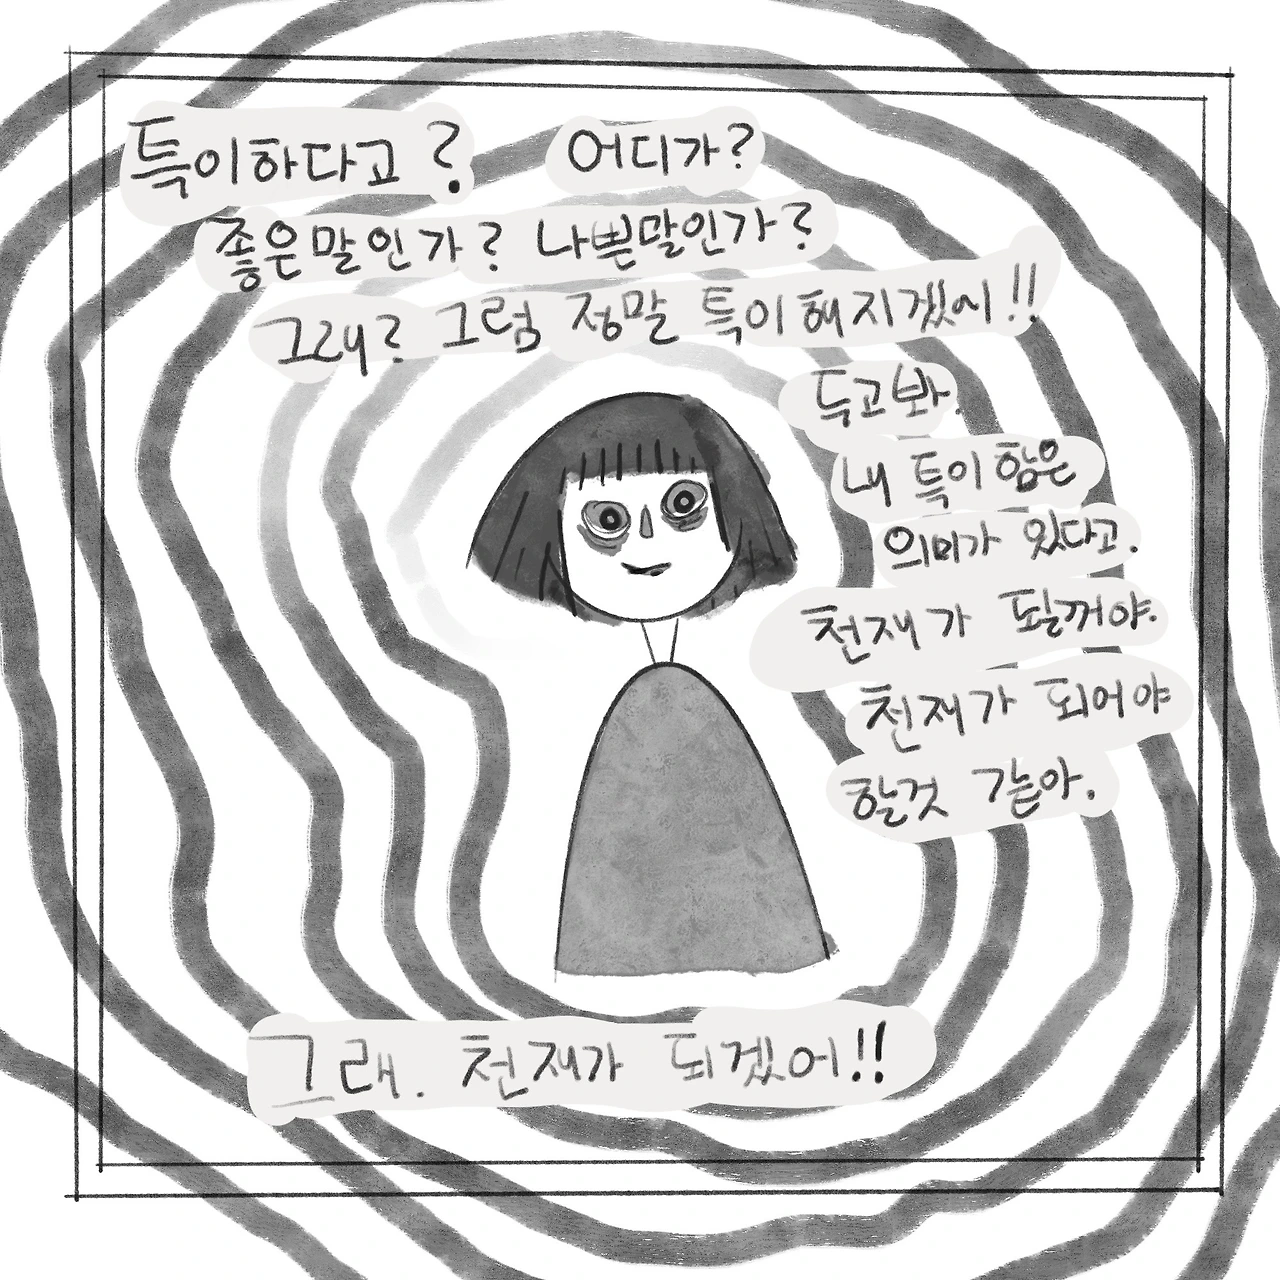 특이하다고? 어디가?
좋은말인가? 나쁜말인가?
그래? 그럼 정말 특이해지겠어!!
두고봐.
내 특이함은
의미가 있다고.
천재가 될꺼야.
천재가 되어야
할것 같아.
그래. 천재가 되겠어!!